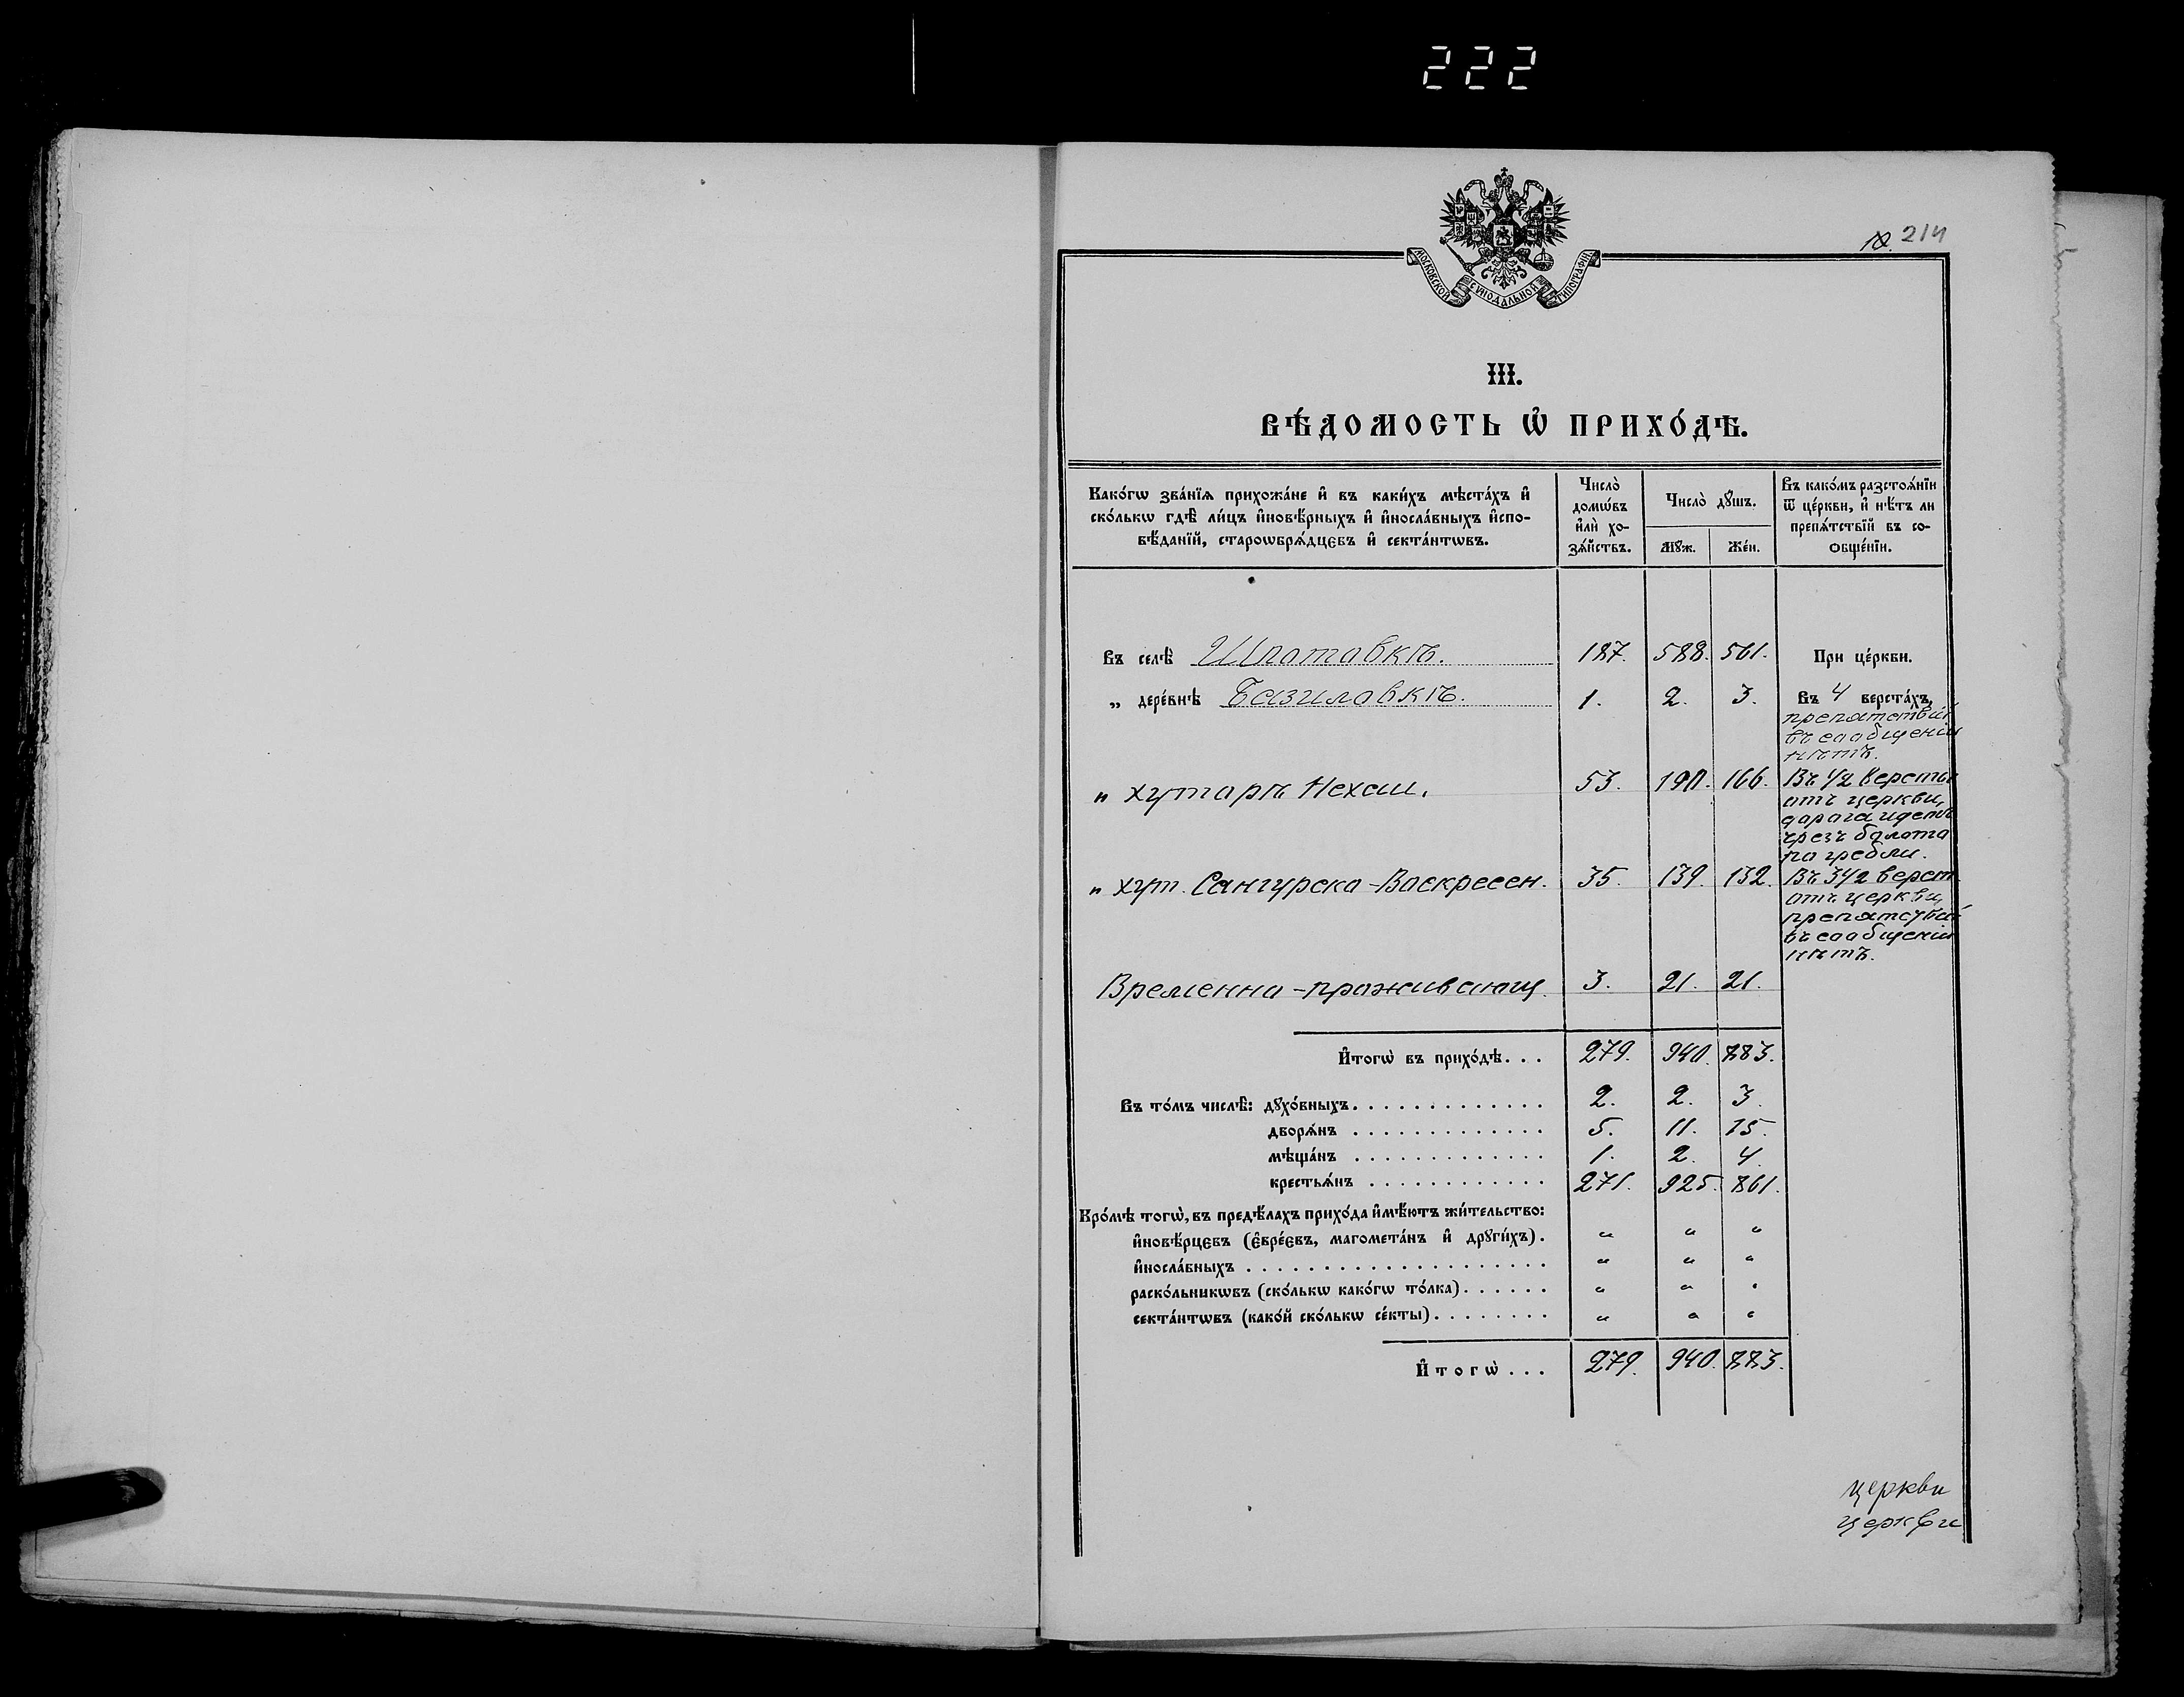 222
10. 214
МОСКОВСКОЙ СѴНОДАЛЬНОЙ ТИПОГРАФІИ
III.
ВѢ́ДОМОСТЬ Ѡ҆ ПРИХО́ДѢ.
Како́гѡ зва́нїѧ прихожа́не и҆ въ каки́хъ мѣста́хъ и҆
ско́лькѡ гдѣ̀ ли́цъ и҆новѣ́рныхъ и҆ и҆носла́вныхъ и҆спо-
вѣ́данїй, старообрѧ́дцєвъ и҆ секта́нтѡвъ.
Число̀
домѡ́въ
и҆лѝ хо-
зѧ́йствъ.
Число̀ дꙋ́шъ.
Мꙋж.
Же́н.
Въ како́мъ разстоѧ́нїи
ѿ це́ркви, и҆ нѣ́тъ ли
препѧ́тствїй въ со-
обще́нїи.
Въ селѣ̀ Шпотовкѣ. 187. 588. 561. При це́ркви.
„ дере́внѣ Базиловкѣ. 1. 2. 3. Въ 4 верста́хъ,
препятствій
въ сообщеніи
нѣтъ.
„ хуторѣ Нехаи. 53. 190. 166. Въ 1/2 версты
отъ церкви,
дорога идетъ
чрезъ болото
по гребли.
„ хут. Сангурско-Воскресен. 35. 139. 132. Въ 3 1/2 верст.
отъ церкви,
препятствій
въ сообщеніи
нѣтъ.
Временно-проживающ. 3. 21. 21.
И҆тогѡ̀ въ прихо́дѣ... 279. 940. 883.
Въ то́мъ числѣ̀: дꙋхо́вныхъ. 2. 2. 3.
дворѧ́нъ 5. 11. 15.
мѣща́нъ 1. 2. 4.
крестьѧ́нъ 271. 925. 861.
Кро́мѣ тогѡ̀, въ предѣ́лахъ прихо́да и҆мѣ́ютъ жи́тельство:
и҆новѣ́рцєвъ (є҆вре́євъ, магомета́нъ и҆ дрꙋги́хъ). „ „ „
и҆носла́вныхъ „ „ „
раско́льникѡвъ (ско́лькѡ како́гѡ то́лка) „ „ „
секта́нтѡвъ (како́й ско́лькѡ се́кты) „ „ „
И҆тогѡ̀... 279. 940. 883.
церкви
церкви